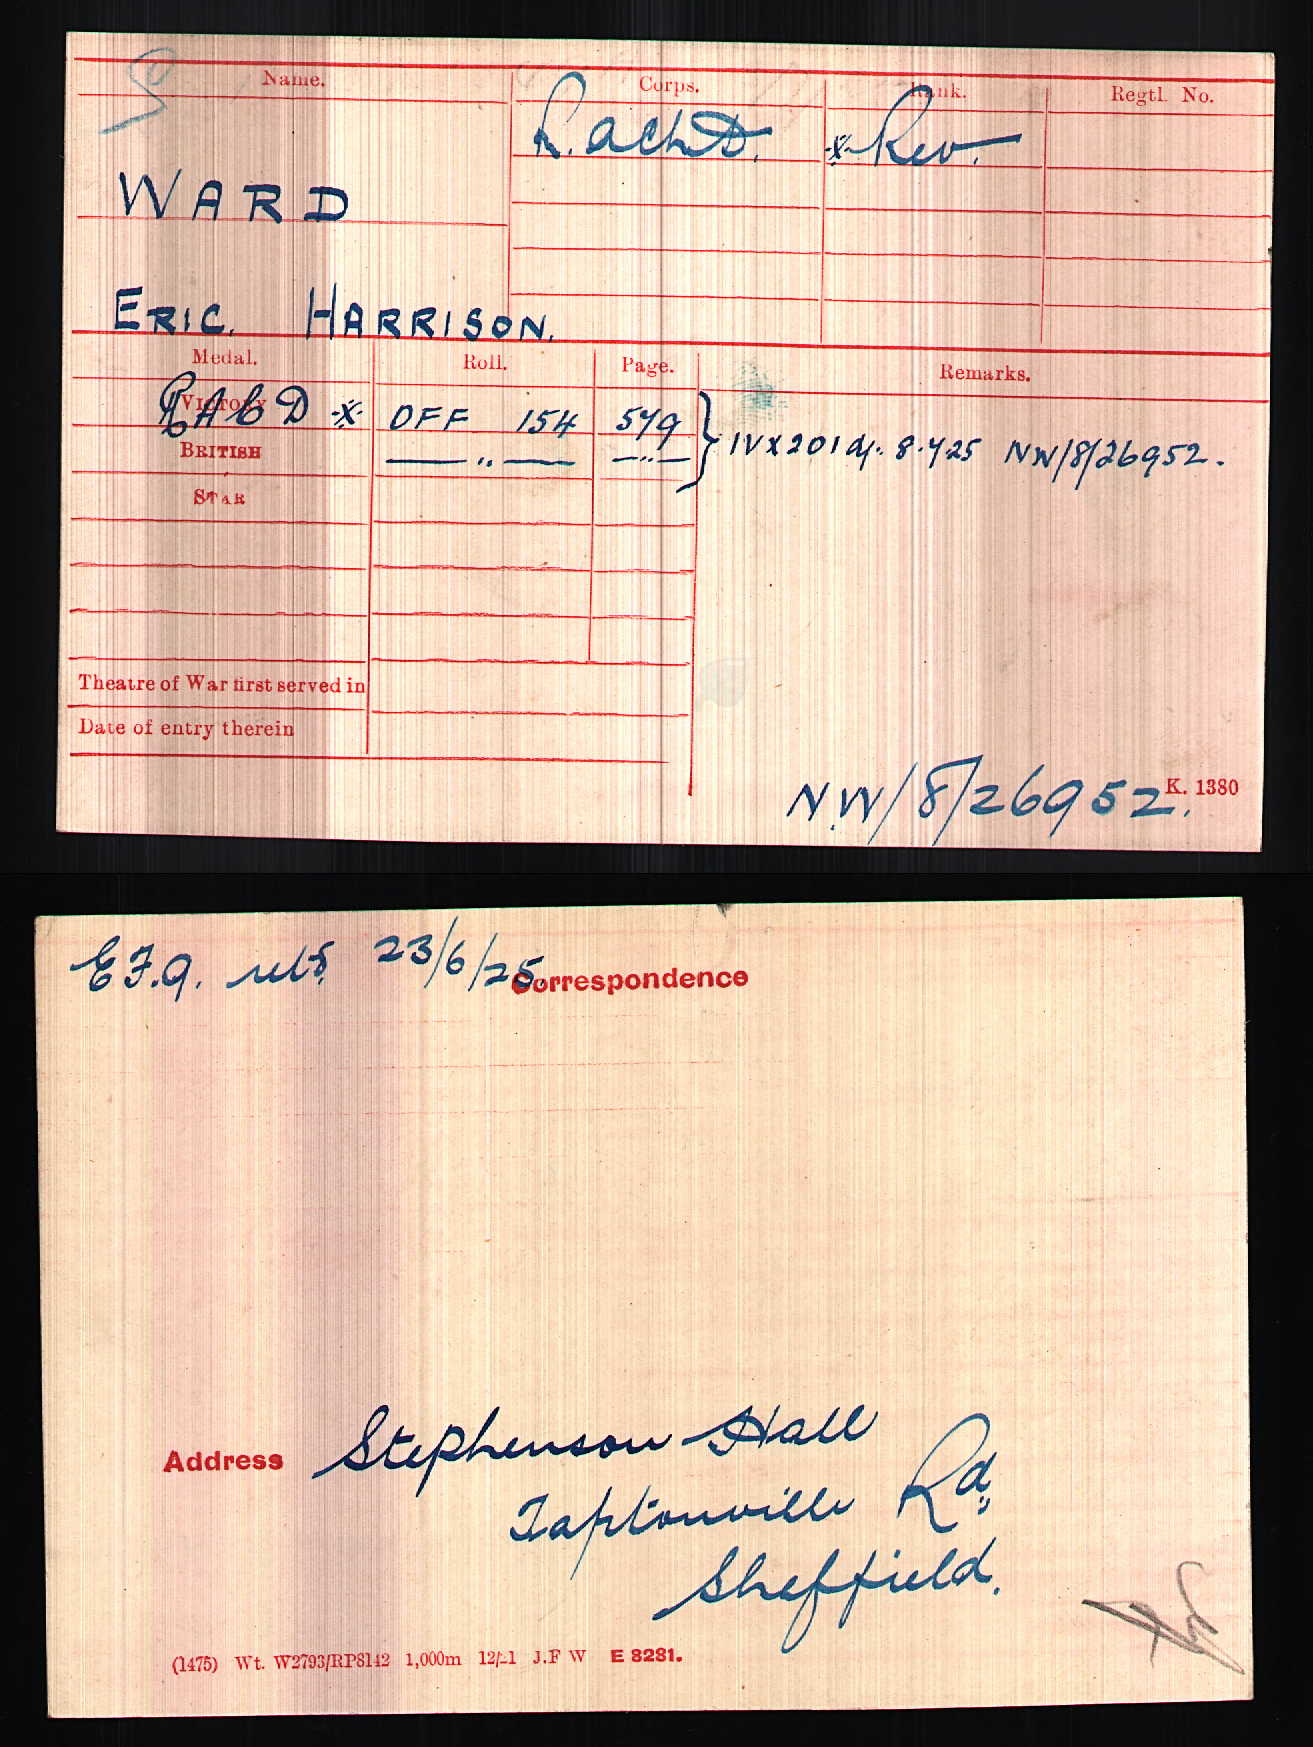 Name. Corps. Rank. Regtl. No.
R. A Ch D. x Rev.
WARD
ERIC. HARRISON.
Medal. Roll. Page. Remarks.
VICTORY RAChD x OFF 154 579
BRITISH —— " —— — " — } IVX201 d/. 8.7.25 NW/8/26952.
STAR
Theatre of War first served in
Date of entry therein
NW/8/26952. K. 1380
E.F.9. 23/6/25. Correspondence
Address Stephenson Hall
Taptonville Rd.
Sheffield.
(1475) Wt. W2793/RP8142 1,000m 12/21 J.F W E 8281.